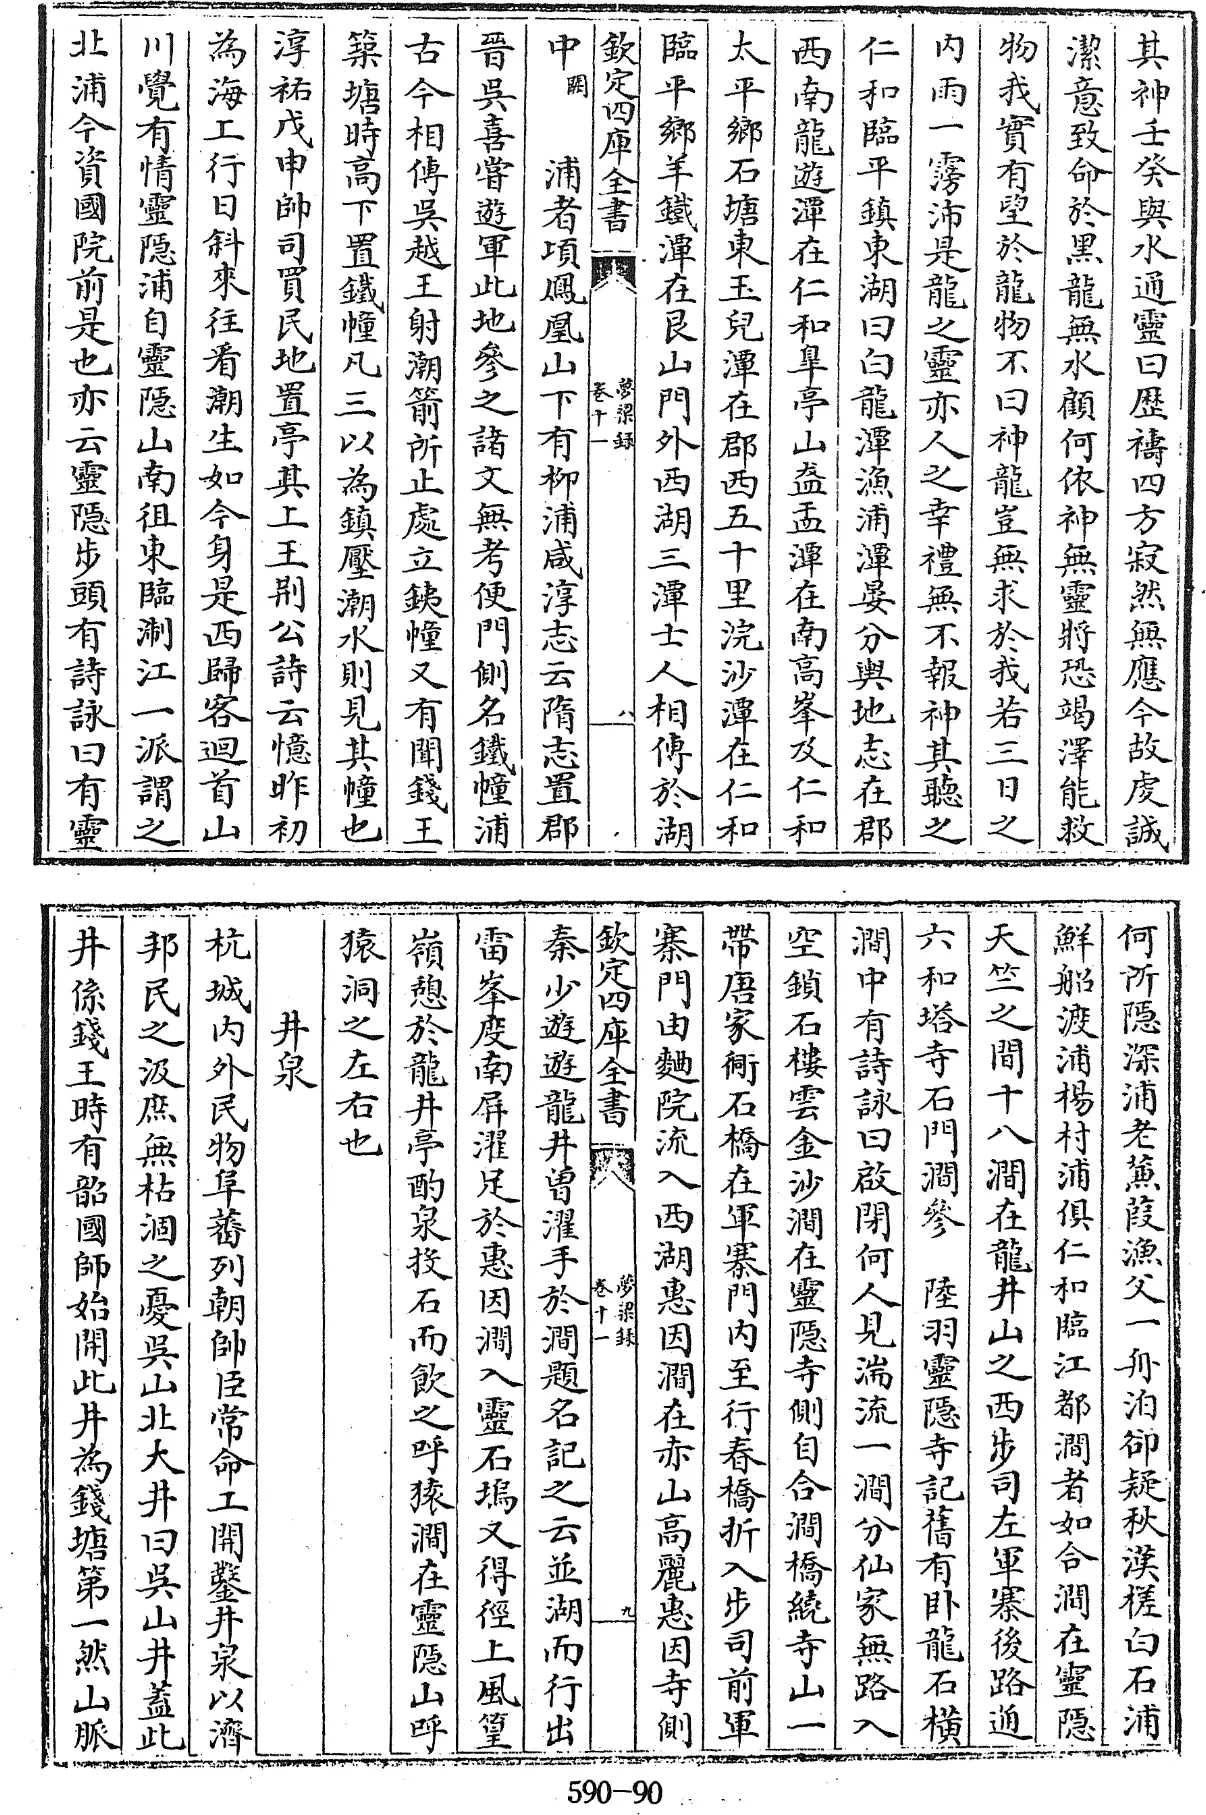 其神壬癸與水通靈曰歷禱四方寂然無應今故虔誠
潔意致命於黑龍無水顧何依神無靈將恐竭澤能救
物我實有望於龍物不曰神龍豈無求於我若三日之
内雨一霶沛是龍之靈亦人之幸禮無不報神其聽之
仁和臨平鎮東湖曰白龍潭漁浦潭晏分輿地志在郡
西南龍遊潭在仁和臯亭山盋盂潭在南高峯及仁和
太平鄉石塘東玉兒潭在郡西五十里浣沙潭在仁和
臨平鄉羊鐵潭在艮山門外西湖三潭士人相傳於湖
欽定四庫全書
夢粱録
卷十一
八
中闕　浦者項鳳凰山下有柳浦咸淳志云隋志置郡
晉吳喜嘗遊軍此地參之諸文無考便門側名鐵幢浦
古今相傳吳越王射潮箭所止處立鐵幢又有聞錢王
築塘時高下置鐵幢凡三以為鎮壓潮水則見其幢也
淳祐戊申帥司買民地置亭其上王荆公詩云憶昨初
為海工行日斜來往看潮生如今身是西歸客迴首山
川覺有情靈隱浦自靈隱山南徂東臨淛江一派謂之
北浦今資國院前是也亦云靈隱步頭有詩詠曰有靈
何所隱深浦老蒹葭漁父一舟泊卻疑秋漢槎白石浦
鮮船渡浦楊村浦俱仁和臨江都澗者如合澗在靈隱
天竺之間十八澗在龍井山之西步司左軍寨後路通
六和塔寺石門澗參　陸羽靈隱寺記舊有卧龍石橫
澗中有詩詠曰啟閉何人見湍流一澗分仙家無路入
空鎖石樓雲金沙澗在靈隱寺側自合澗橋繞寺山一
帶唐家衕石橋在軍寨門内至行春橋折入步司前軍
寨門由麯院流入西湖惠因澗在赤山高麗惠因寺側
欽定四庫全書
夢粱録
卷十一
九
秦少遊遊龍井曾濯手於澗題名記之云並湖而行出
雷峯度南屏濯足於惠因澗入靈石塢又得徑上風篁
嶺憩於龍井亭酌泉投石而飲之呼猿澗在靈隱山呼
猿洞之左右也
井泉
杭城内外民物阜蕃列朝帥臣常命工開鑿井泉以濟
邦民之汲庶無枯涸之憂吳山北大井曰吳山井蓋此
井係錢王時有韶國師始開此井為錢塘第一然山脈
590-90